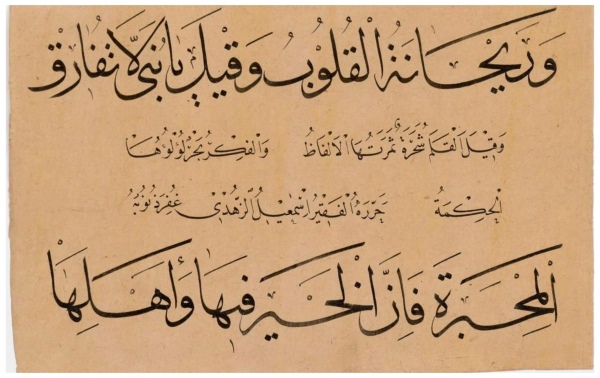 وَرَيْحَانَةُ الْقُلُوبِ وَقِيلَ يَا بُنَيَّ لَا تُفَارِقْ
وَقِيلَ الْقَلَمُ شَجَرَةٌ ثَمَرَتُهَا الْأَلْفَاظُ وَالْفِكْرُ بَحْرٌ لُؤْلُؤُهَا
الْحِكْمَةُ حَرَّرَهُ الْفَقِيرُ إِسْمَعِيلُ الزُّهْدِيّ غُفِرَ ذُنُوبُهُ
الْمِحْبَرَةَ فَإِنَّ الْخَيْرَ فِيهَا وَأَهْلِهَا